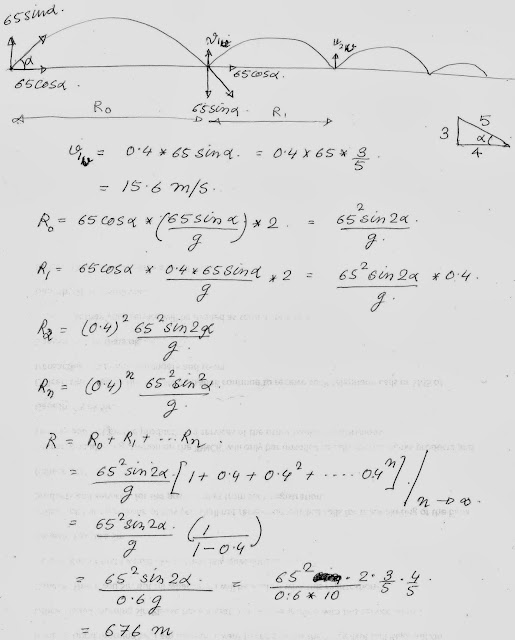 65sinα.
α
65cosα.
v₁ᵥ
65cosα.
65sinα.
v₂ᵥ
R₀
R₁
3
5
α
4
v₁ᵥ = 0.4 * 65 sinα. = 0.4 * 65 * 3/5
= 15.6 m/s.
R₀ = 65cosα * (65sinα/g) * 2 = 65² sin2α./g.
R₁ = 65cosα * 0.4*65sinα/g * 2 = 65² sin2α/g. * 0.4.
R₂ = (0.4)² 65² sin2α/g.
Rₙ = (0.4)ⁿ 65² sin²α/g.
R = R₀ + R₁ + ... Rₙ.
= 65² sin2α/g [1 + 0.4 + 0.4² + ..... 0.4ⁿ] / n→∞.
= 65² sin2α./g (1/1-0.4)
= 65² sin2α./0.6g = 65² . 2 . 3/5 . 4/5./0.6 * 10
= 676 m